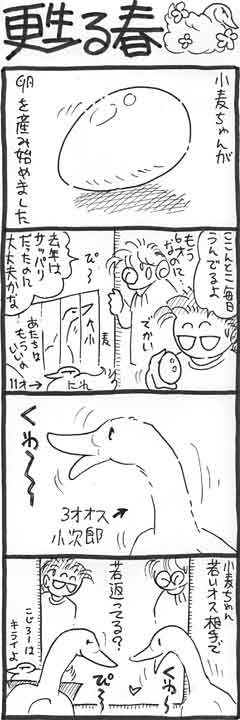 甦る春
小麦ちゃんが
卵を産み始めました
ここんとこ毎日
うんでるよ
もう
6才なのに
でかい
ぴ〜
去年は
サッパリ
だったのに
大丈夫かな
大小
麦
あたちは
もういいの
11才→
たれ
くわ〜〜
3才オス
小次郎
小麦ちゃん
若いオス相手で
若返ってる?
くわ〜
ぴ〜
こじろーは
キライよ